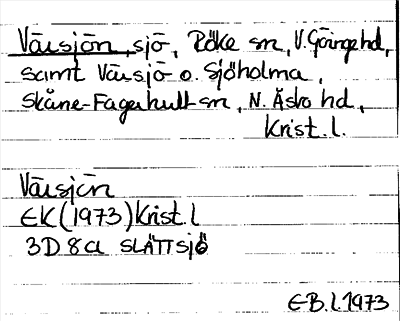 Värsjön, sjö, Röke sn, V. Göinge hd,
samt Värsjö o. Sjöholma,
Skåne-Fagerhult sn, N. Åsbo hd,
Krist. l.
Värsjön
EK (1973) Krist. l
3D 8a SLÄTTSJÖ
E-B. l. 1973